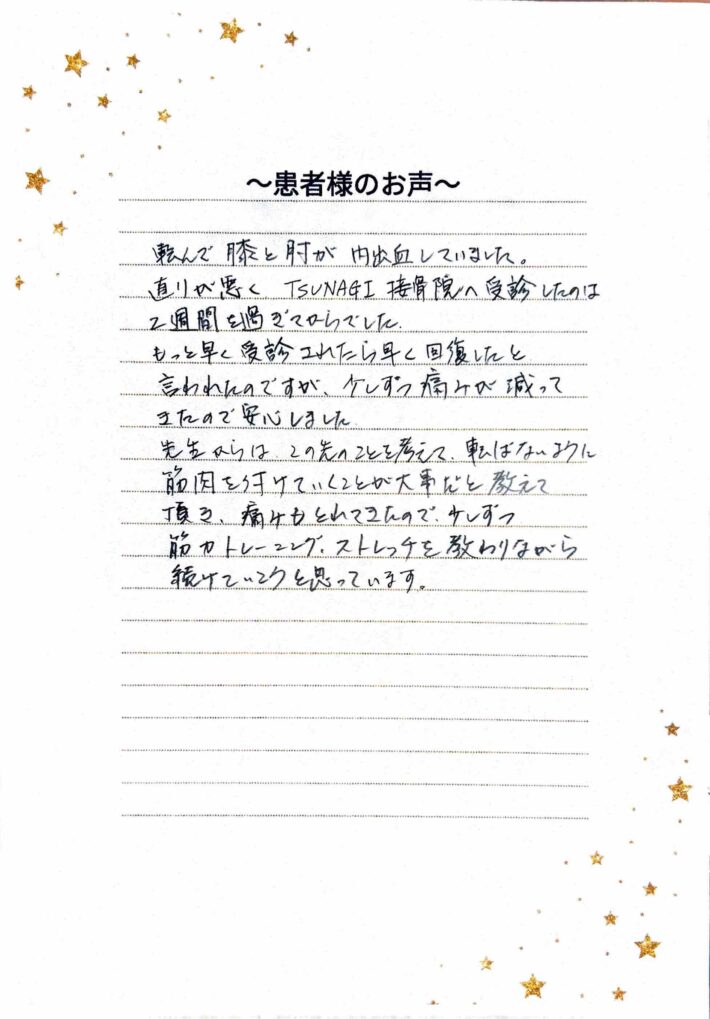 ～患者様のお声～
転んで膝と肘が内出血していました。
直りが悪く TSUNAGI接骨院へ受診したのは
2週間を過ぎてからでした.
もっと早く受診されたら早く回復したと
言われたのですが、少しずつ痛みが減って
きたので安心しました
先生からは、この先のことを考えて、転ばないように
筋肉を付けていくことが大事だと教えて
頂き、痛みもとれてきたので、少しずつ
筋力トレーニング、ストレッチを教わりながら
続けていこうと思っています。